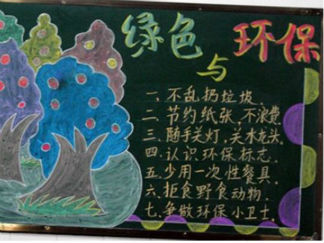 绿色
与
环保
一、不乱扔垃圾.
二、节约纸张,不浪费
三、随手关灯,关水龙头.
四、认识环保标志.
五、少用一次性餐具.
六、拒食野食动物.
七、争做环保小卫士.